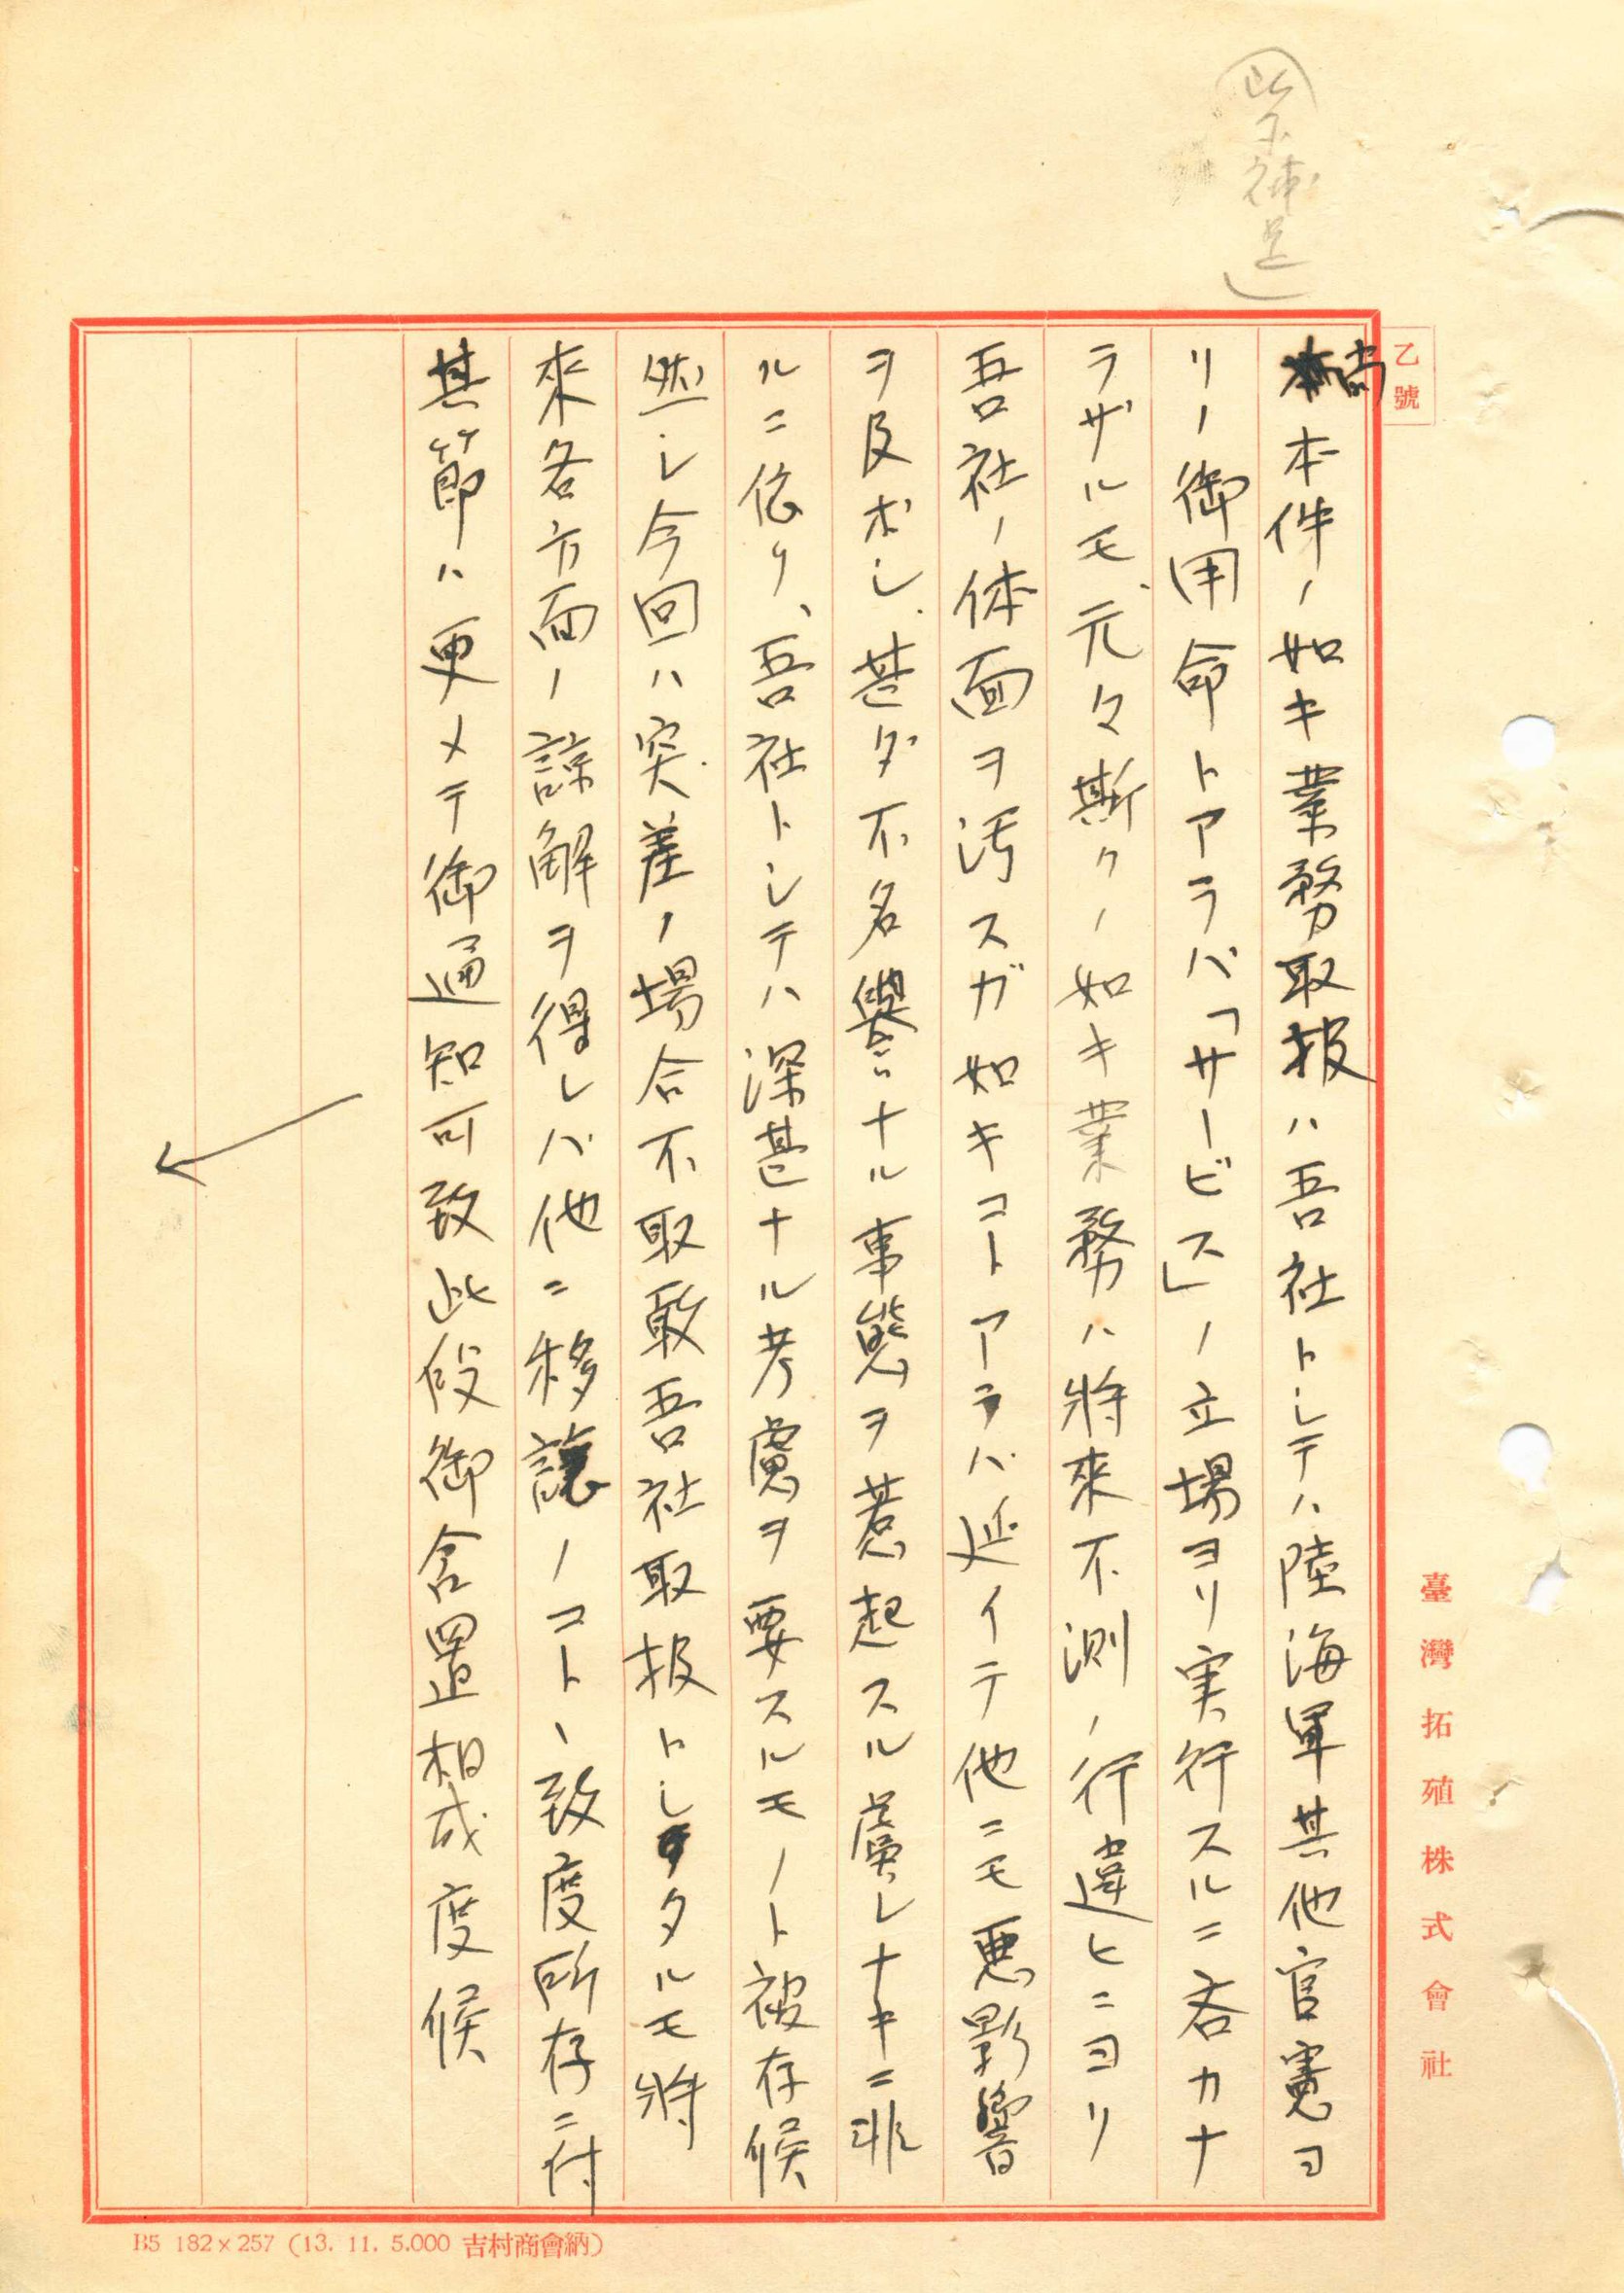 (此下補足)
乙號
尚本件ノ如キ業務取扱ハ吾社トシテハ陸海軍其他官憲ヨ
リノ御用命トアラバ「サービス」ノ立場ヨリ実行スルニ吝カナ
ラザルモ、元々斯クノ如キ業務ハ將来不測ノ行違ヒニヨリ
吾社ノ体面ヲ汚スガ如キコトアラバ延イテ他ニモ悪影響
ヲ及ボシ、甚ダ不名譽ナル事態ヲ惹起スル虞レナキニ非
ルニ依リ、吾社トシテハ深甚ナル考慮ヲ要スルモノト被存候
然シ今回ハ突差ノ場合不取敢吾社取扱トシタルモ將
來各方面ノ諒解ヲ得レバ他ニ移讓ノコトヽ致度所存ニ付
其節ハ更メテ御通知可致此段御含置相成度候
臺灣拓殖株式會社
B5 182×257 (13. 11. 5.000 吉村商會納)